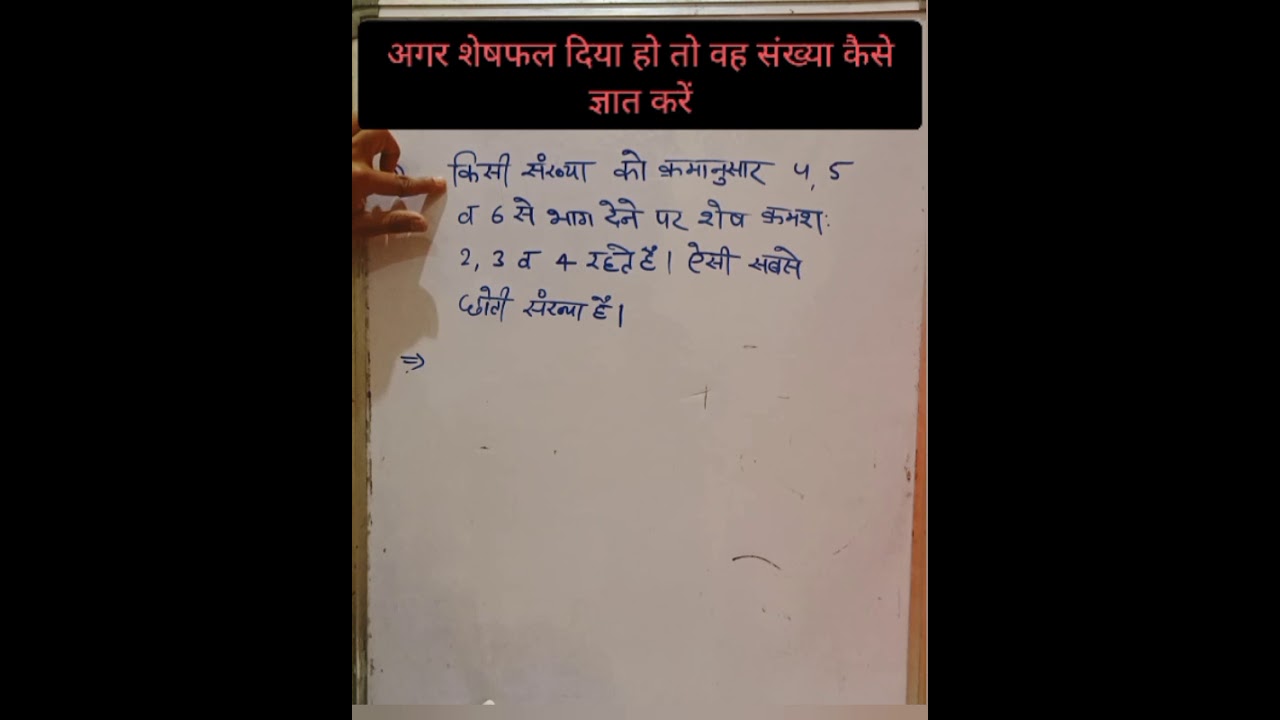 अगर शेषफल दिया हो तो वह संख्या कैसे
ज्ञात करें
किसी संख्या को क्रमानुसार 4, 5
व 6 से भाग देने पर शेष क्रमश:
2, 3 व 4 रहते हैं। ऐसी सबसे
छोटी संख्या है।
⇒